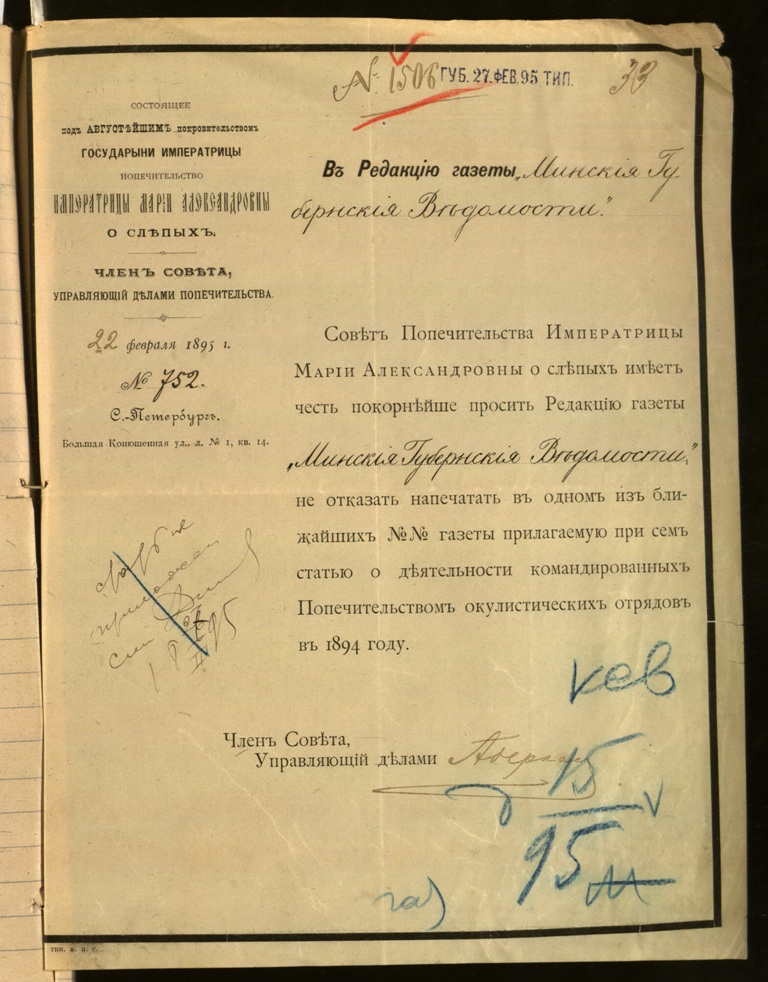 № 1506 ГУБ. 27.ФЕВ.95 ТИП. 33
СОСТОЯЩЕЕ
подъ АВГУСТѢЙШИМЪ покровительствомъ
ГОСУДАРЫНИ ИМПЕРАТРИЦЫ
ПОПЕЧИТЕЛЬСТВО
ИМПЕРАТРИЦЫ МАРІИ АЛЕКСАНДРОВНЫ
О СЛѢПЫХЪ.
ЧЛЕНЪ СОВѢТА,
УПРАВЛЯЮЩІЙ ДѢЛАМИ ПОПЕЧИТЕЛЬСТВА.
22 февраля 1895 г.
№ 752.
С.-Петербургъ.
Большая Конюшенная ул., д. № 1, кв. 14.
Въ Редакцію газеты „Минскія Гу-
бернскія Вѣдомости".
Совѣтъ Попечительства Императрицы
Маріи Александровны о слѣпыхъ имѣетъ
честь покорнѣйше просить Редакцію газеты
„Минскія Губернскія Вѣдомости",
не отказать напечатать въ одномъ изъ бли-
жайшихъ №№ газеты прилагаемую при семъ
статью о дѣятельности командированныхъ
Попечительствомъ окулистическихъ отрядовъ
въ 1894 году.
Членъ Совѣта,
Управляющій дѣлами
15
95
тип. м. п. с.